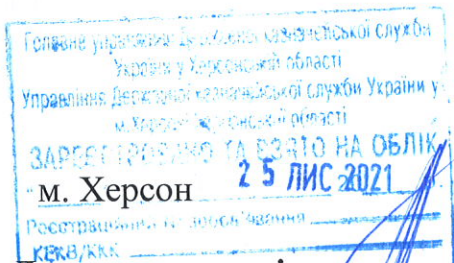 Головне управління Державної казначейської служби
України у Херсонській області
Управління Державної казначейської служби України у
м. Херсоні Херсонської області
ЗАРЕЄСТРОВАНО ТА ВЗЯТО НА ОБЛІК
м. Херсон 25 ЛИС 2021
Реєстраційний № зобов'язання
КЕКВ/ККК